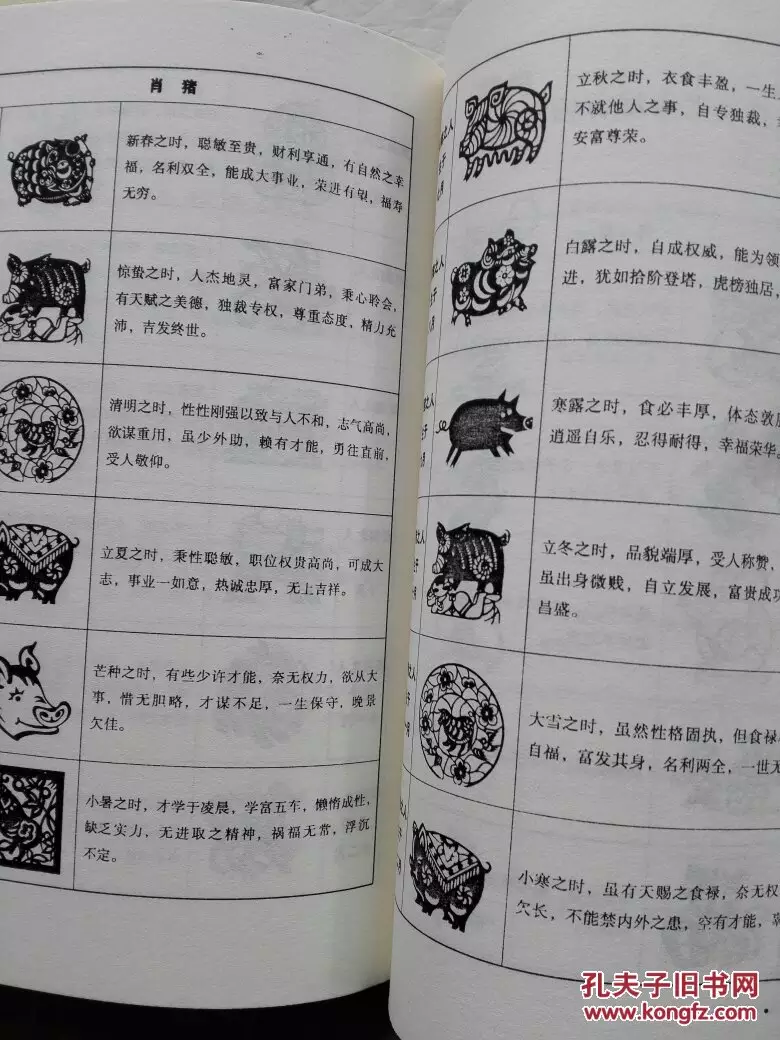 肖 猪
新春之时，聪敏至贵，财利享通，有自然之幸
福，名利双全，能成大事业，荣进有望，福寿
无穷。
惊蛰之时，人杰地灵，富家门弟，秉心聆会，
有天赋之美德，独裁专权，尊重态度，精力充
沛，吉发终世。
清明之时，性性刚强以致与人不和，志气高尚，
欲谋重用，虽少外助，赖有才能，勇往直前，
受人敬仰。
立夏之时，秉性聪敏，职位权贵高尚，可成大
志，事业一如意，热诚忠厚，无上吉祥。
芒种之时，有些少许才能，奈无权力，欲从大
事，惜无胆略，才谋不足，一生保守，晚景
欠佳。
小暑之时，才学于凌晨，学富五车，懒惰成性，
缺乏实力，无进取之精神，祸福无常，浮沉
不定。
立秋之时，衣食丰盈，一生
不就他人之事，自专独裁，
安富尊荣。
白露之时，自成权威，能为领
进，犹如拾阶登塔，虎榜独居，
寒露之时，食必丰厚，体态敦
逍遥自乐，忍得耐得，幸福荣华。
立冬之时，品貌端厚，受人称赞，
虽出身微贱，自立发展，富贵成功
昌盛。
大雪之时，虽然性格固执，但食禄
自福，富发其身，名利两全，一世无
小寒之时，虽有天赐之食禄，奈无权
欠长，不能禁内外之患，空有才能，
孔夫子旧书网
www.kongfz.com